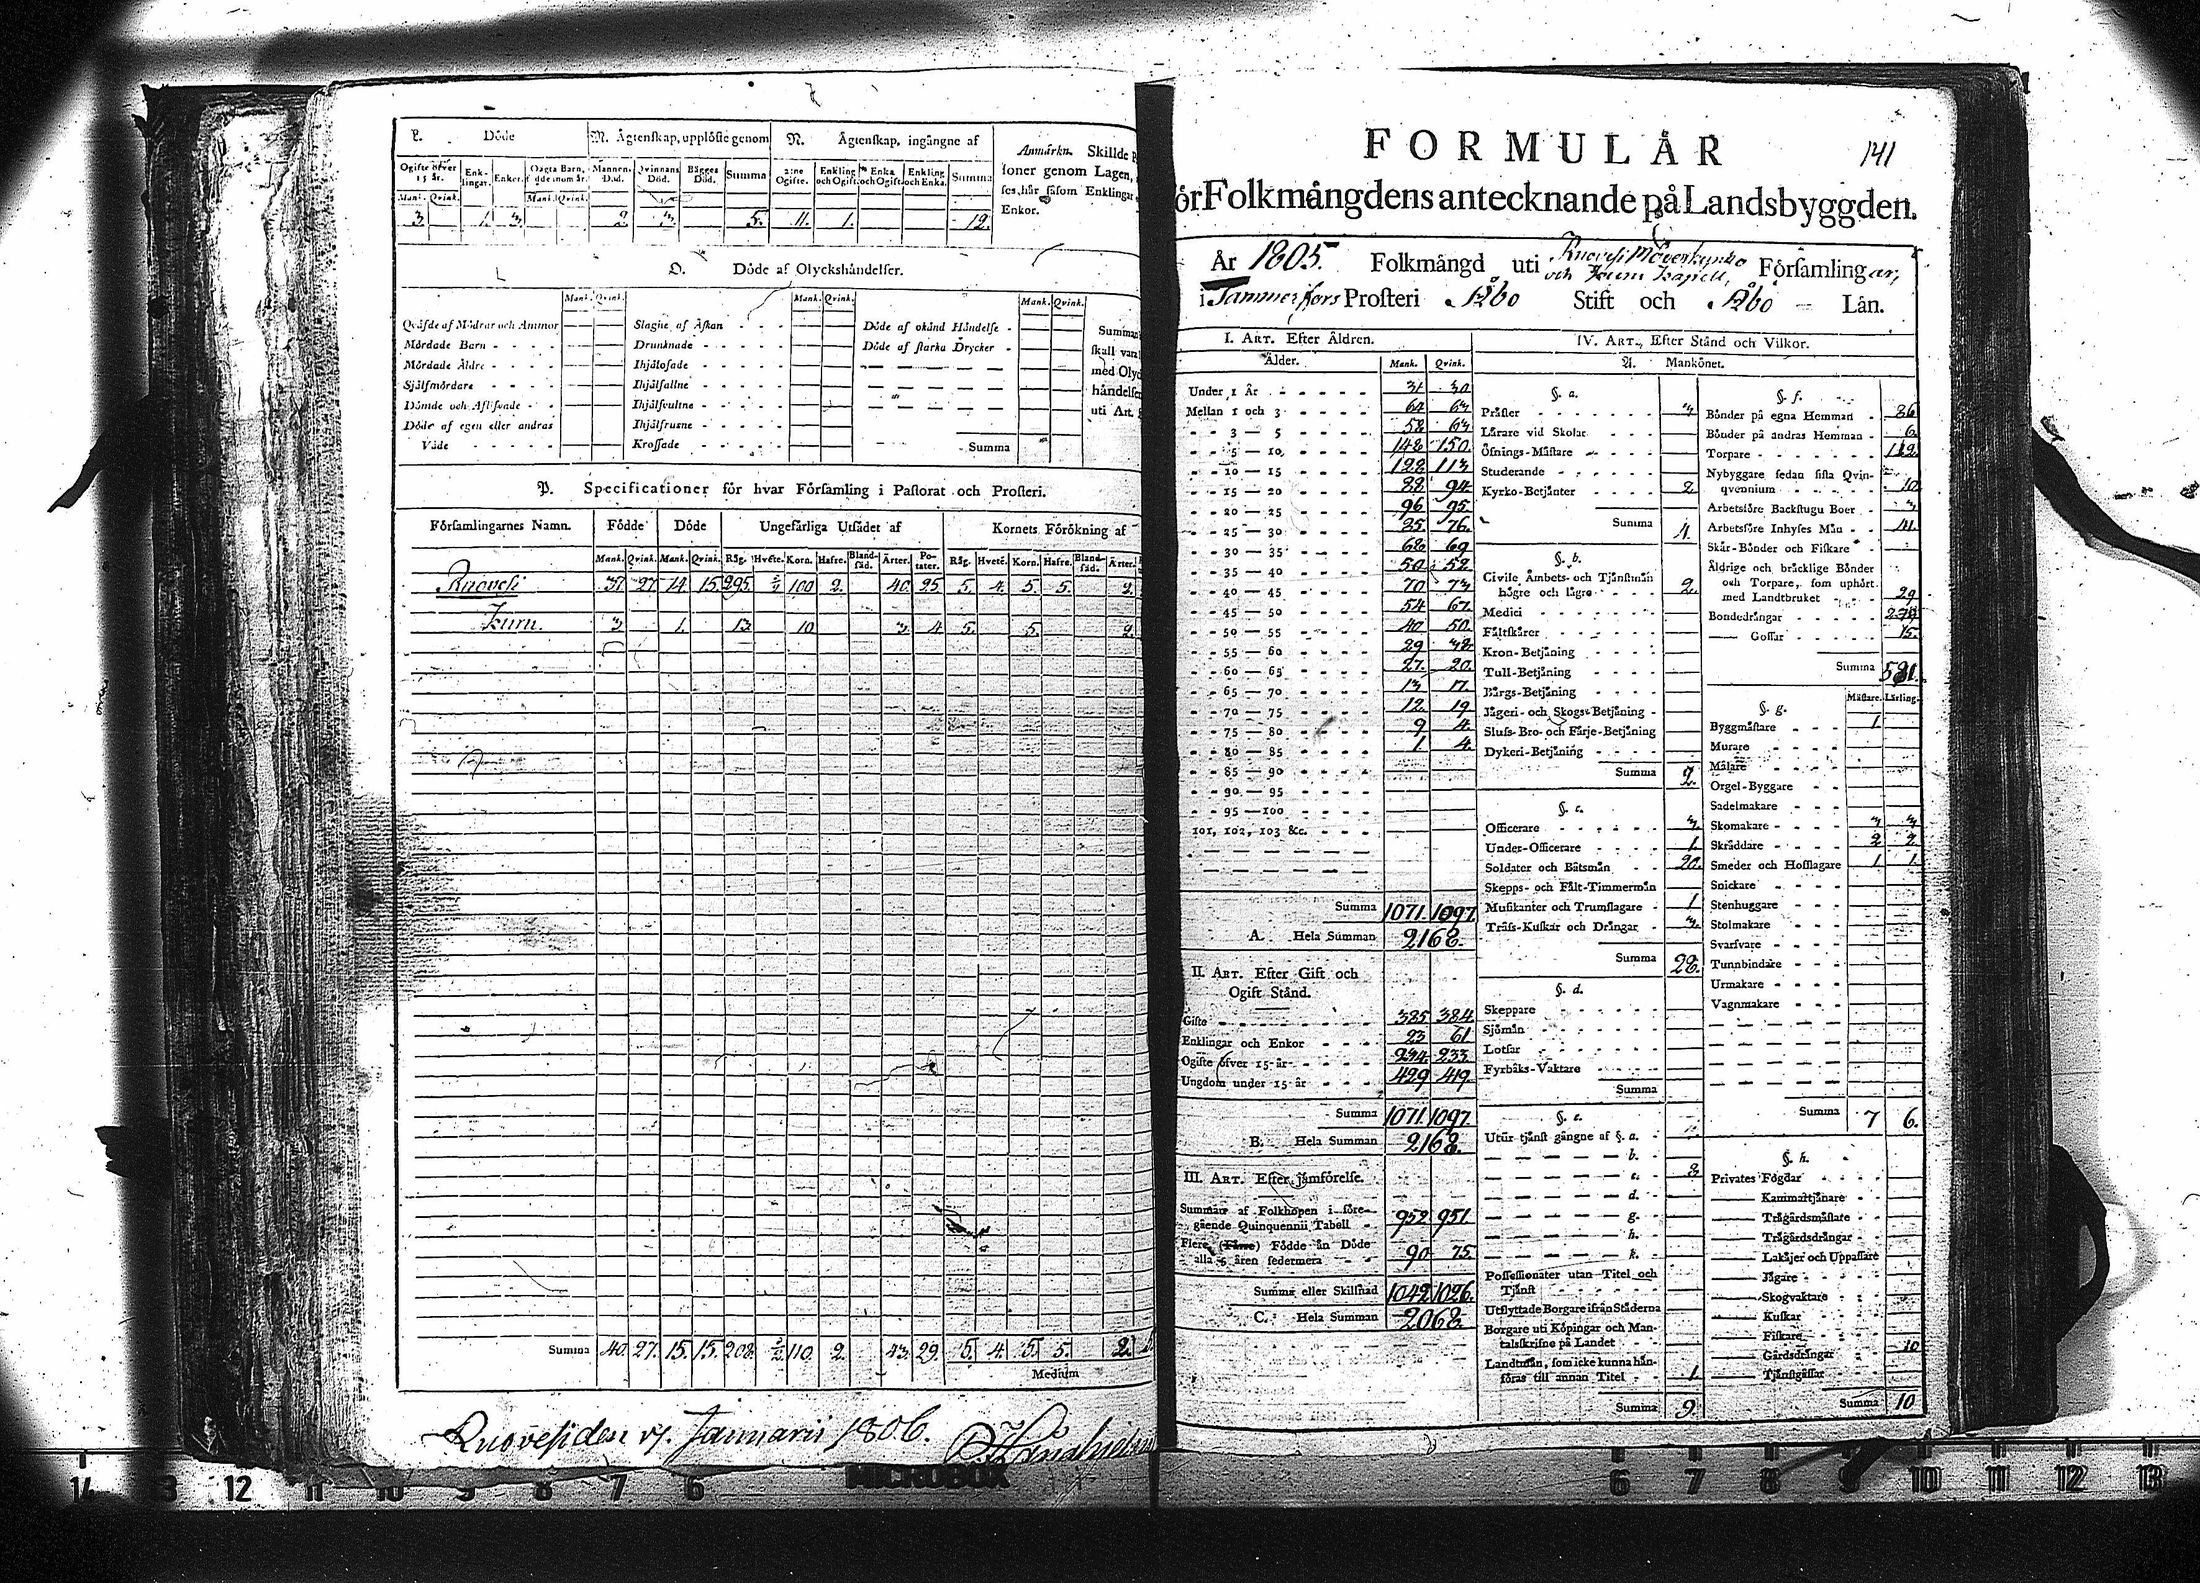 L. Döde
M. Ägtenskap, upplöste genom
N. Ägtenskap, ingångne af
Ogifte öfver 15 år. Enklingar. Enkor. Oägta Barn, döde inom år. Mannens Död. Qvinnans Död. Bägges Död. Summa 2:ne Ogifte. Enkling och Ogift Enka och Ogift Enkling och Enka. Summa
Mank. Qvink. Mank. Qvink.
3. 1. 3. 2. 3. 5. 11. 1. 12.
Anmärkn. Skillde
soner genom Lagen,
ses här såsom Enklingar
Enkor.
O. Döde af Olyckshändelser.
Mank. Qvink. Mank. Qvink. Mank. Qvink.
Qväfde af Mödrar och Ammor
Mördade Barn
Mördade Äldre
Sjelfmördare
Dömde och Aflifvade
Döde af egen eller andras
Våde
Slagne af Åskan
Drunknade
Ihjälosade
Ihjälfallne
Ihjälsvultne
Ihjälfrusne
Krossade
Döde af okänd Händelse
Döde af starka Drycker
Summa
skall
med
händelser
uti Art.
P. Specificationer för hvar Församling i Pastorat och Prosteri.
Församlingarnes Namn. Födde Döde Ungefärliga Utsädet af Kornets Förökning af
Mank. Qvink. Mank. Qvink. Råg. Hvete. Korn. Hafre. Blandsäd. Ärter. Potater. Råg. Hvete. Korn. Hafre. Blandsäd. Ärter.
Ruovesi 37. 27. 14. 15. 295. 100 2. 40. 25 5. 4. 5. 5. 2.
Kuru. 3 1. 13. 10 3. 4. 5. 5. 2.
Summa 40. 27. 15. 15. 208. 110. 2. 43. 29. 5. 4. 5. 5. 2.
Medium
Ruovesi den Januarii 1806.
MICROBOX
FORMULÄR
141
för Folkmängdens antecknande på Landsbyggden.
År 1805. Folkmängd uti Ruovesi Moderkyrko
och Kuru Kapell, Församlingar,
i Tammerfors Prosteri Åbo Stift och Åbo Län.
I. ART. Efter Åldren.
Ålder. Mank. Qvink.
Under 1 År 31 30
Mellan 1 och 3 64 63
3 — 5 58 63
5 — 10 148 150.
10 — 15 128 113
15 — 20 88 94
20 — 25 96 95
25 — 30 85 76.
30 — 35 68 69
35 — 40 50 58
40 — 45 70 73
45 — 50 54 67.
50 — 55 40 50
55 — 60 29 38
60 — 65 27. 20.
65 — 70 13 17.
70 — 75 12. 19
75 — 80 9 4.
80 — 85 1. 4.
85 — 90
90 — 95
95 — 100
101, 102, 103 &c.
Summa 1071. 1097.
A. Hela Summan 2168.
II. ART. Efter Gift och
Ogift Stånd.
Gifte 385 384
Enklingar och Enkor 23 61
Ogifte öfver 15 år 234. 233.
Ungdom under 15 år 429 419.
Summa 1071. 1097.
B. Hela Summan 2168.
III. ART. Efter jämförelse.
Summan af Folkhopen i föregående Quinquennii Tabell 952 951
Flere (Färre) Födde än Döde
alla 5 åren sedermera 90 75.
Summa eller Skillnad 1042. 1026.
C. Hela Summan 2068.
IV. ART. Efter Stånd och Vilkor.
A. Mankönet.
§. a.
Präster 3
Lärare vid Skolar
Öfnings-Mästare
Studerande
Kyrko-Betjänter 2.
Summa
§. b.
Civile Ämbets- och Tjänstmän
högre och lägre 2.
Medici
Fältskärer
Kron-Betjäning
Tull-Betjäning
Bärgs-Betjäning
Jägeri- och Skogs-Betjäning
Sluss-Bro- och Färje-Betjäning
Dykeri-Betjäning
Summa 2.
§. c.
Officerare 3.
Under-Officerare 1.
Soldater och Båtsmän 20.
Skepps- och Fält-Timmermän
Musikanter och Trumslagare 1
Träss-Kuskar och Drängar 3.
Summa 28.
§. d.
Skeppare
Sjömän
Lotsar
Fyrbåks-Vaktare
Summa
§. e.
Utur tjänst gångne af §. a.
b.
c. 8
d.
g.
h.
k.
Possessionater utan Titel och
Tjänst
Utflyttade Borgare ifrån Städerna
Borgare uti Köpingar och Mantalsskrifne på Landet
Landtmän, som icke kunna hänföras till annan Titel 1.
Summa 9.
§. f.
Bönder på egna Hemman 86
Bönder på andras Hemman 6
Torpare 112.
Nybyggare sedan sista Qvinqvennium 10
Arbetsföre Backstugu Boer 3
Arbetsföre Inhyses Män 41.
Skär-Bönder och Fiskare
Äldrige och bräcklige Bönder
och Torpare, som uphört
med Landtbruket 29
Bondedrängar
Gossar 15.
Summa
Mästare. Lärling.
§. g.
Byggmästare 1.
Murare
Målare
Orgel-Byggare
Sadelmakare
Skomakare 3 3
Skräddare 2 2
Smeder och Hofslagare 1 1.
Snickare
Stenhuggare
Stolmakare
Svarfvare
Tunnbindare
Urmakare
Vagnmakare
Summa 7 6.
§. h.
Privates Fogdar
Kammartjänare
Trägårdsmästare
Trägårdsdrängar
Lakäjer och Uppassare
Jägare
Skogvaktare
Kuskar
Fiskare
Gårdsdrängar 10
Tjänstgässar
Summa 10
14 13 12 11 10 9 8 7 6
6 7 8 9 10 11 12 13